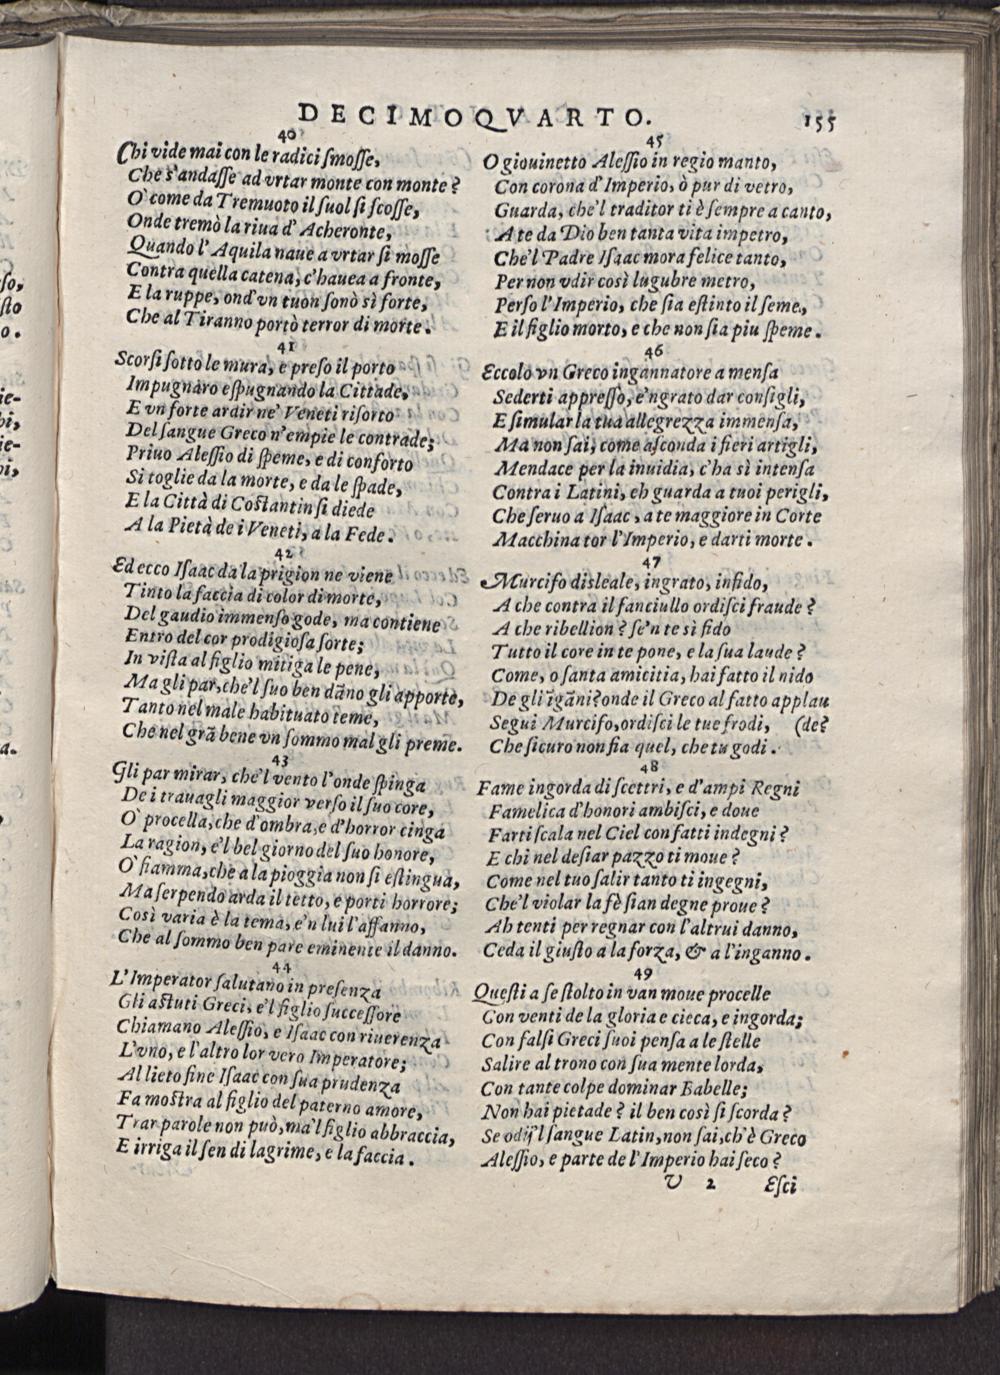 DECIMOQVARTO. 155
40
Chi vide mai con le radici ſmoſſe,
Che s'andaſſe ad vrtar monte con monte?
O' come da Tremuoto il ſuol ſi ſcoſſe,
Onde tremò la riua d'Acheronte,
Quando l'Aquila naue a vrtar ſi moſſe
Contra quella catena, c'hauea a fronte,
E la ruppe, ond'vn tuon ſonò sì forte,
Che al Tiranno portò terror di morte.
41
Scorſi ſotto le mura, e preſo il porto
Impugnaro eſpugnando la Cittade,
E vn forte ardir ne' Veneti riſorto
Del ſangue Greco n'empie le contrade;
Priuo Aleſſio di ſpeme, e di conforto
Si toglie da la morte, e da le ſpade,
E la Città di Coſtantin ſi diede
A la Pietà de i Veneti, a la Fede.
42
Ed ecco Iſaac da la prigion ne viene
Tinto la faccia di color di morte,
Del gaudio immenſo gode, ma contiene
Entro del cor prodigioſa ſorte;
In viſta al figlio mitiga le pene,
Ma gli par, che'l ſuo ben dãno gli apporte,
Tanto nel male habituato teme,
Che nel grã bene vn ſommo mal gli preme.
43
Gli par mirar, che'l vento l'onde ſpinga
De i trauagli maggior verſo il ſuo core,
O' procella, che d'ombra, e d'horror cinga
La ragion, e'l bel giorno del ſuo honore,
O' fiamma, che a la pioggia non ſi eſtingua,
Ma ſerpendo arda il tetto, e porti horrore;
Così varia è la tema, e'n lui l'affanno,
Che al ſommo ben pare eminente il danno.
44
L'Imperator ſalutano in preſenza
Gli aſtuti Greci, e'l figlio ſucceſſore
Chiamano Aleſſio, e Iſaac con riuerenza
L'vno, e l'altro lor vero Imperatore;
Al lieto fine Iſaac con ſua prudenza
Fa moſtra al figlio del paterno amore,
Trar parole non può, ma'l figlio abbraccia,
E irriga il ſen di lagrime, e la faccia.
45
O giouinetto Aleſſio in regio manto,
Con corona d'Imperio, ò pur di vetro,
Guarda, che'l traditor ti è ſempre a canto,
A te da Dio ben tanta vita impetro,
Che'l Padre Iſaac mora felice tanto,
Per non vdir così lugubre metro,
Perſo l'Imperio, che ſia eſtinto il ſeme,
E il figlio morto, e che non ſia piu ſpeme.
46
Eccolo vn Greco ingannatore a menſa
Sederti appreſſo, e'ngrato dar conſigli,
E ſimular la tua allegrezza immenſa,
Ma non ſai, come aſconda i fieri artigli,
Mendace per la inuidia, c'ha sì intenſa
Contra i Latini, eh guarda a tuoi perigli,
Che ſeruo a Iſaac, a te maggiore in Corte
Macchinator l'Imperio, e darti morte.
47
Murcifo disleale, ingrato, infido,
A che contra il fanciullo ordiſci fraude?
A che ribellion? ſe'n te sì fido
Tutto il core in te pone, e la ſua laude?
Come, o ſanta amicitia, hai fatto il nido
De gli ĩgãni? onde il Greco al fatto applau
Segui Murcifo, ordiſci le tue frodi, (de?
Che ſicuro non fia quel, che tu godi.
48
Fame ingorda di ſcettri, e d'ampi Regni
Famelica d'honori ambiſci, e doue
Farti ſcala nel Ciel con fatti indegni?
E chi nel deſiar pazzo ti moue?
Come nel tuo ſalir tanto ti ingegni,
Che'l violar la fè ſian degne proue?
Ah tenti per regnar con l'altrui danno,
Ceda il giuſto a la forza, & a l'inganno.
49
Queſti a ſe ſtolto in van moue procelle
Con venti de la gloria e cieca, e ingorda;
Con falſi Greci ſuoi penſa a le ſtelle
Salire al trono con ſua mente lorda,
Con tante colpe dominar Babelle;
Non hai pietade? il ben così ſi ſcorda?
Se odij'l ſangue Latin, non ſai, ch'è Greco
Aleſſio, e parte de l'Imperio hai ſeco?
V 2 Eſci